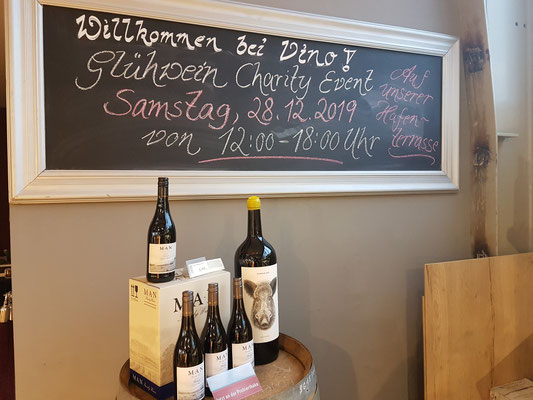 Willkommen bei Vino!
Glühwein Charity Event
Samstag, 28.12.2019
von 12:00-18:00 Uhr
Auf
unserer
Hafen-
terrasse
MAN
MAN
MAN
MAN
MAN
MAN